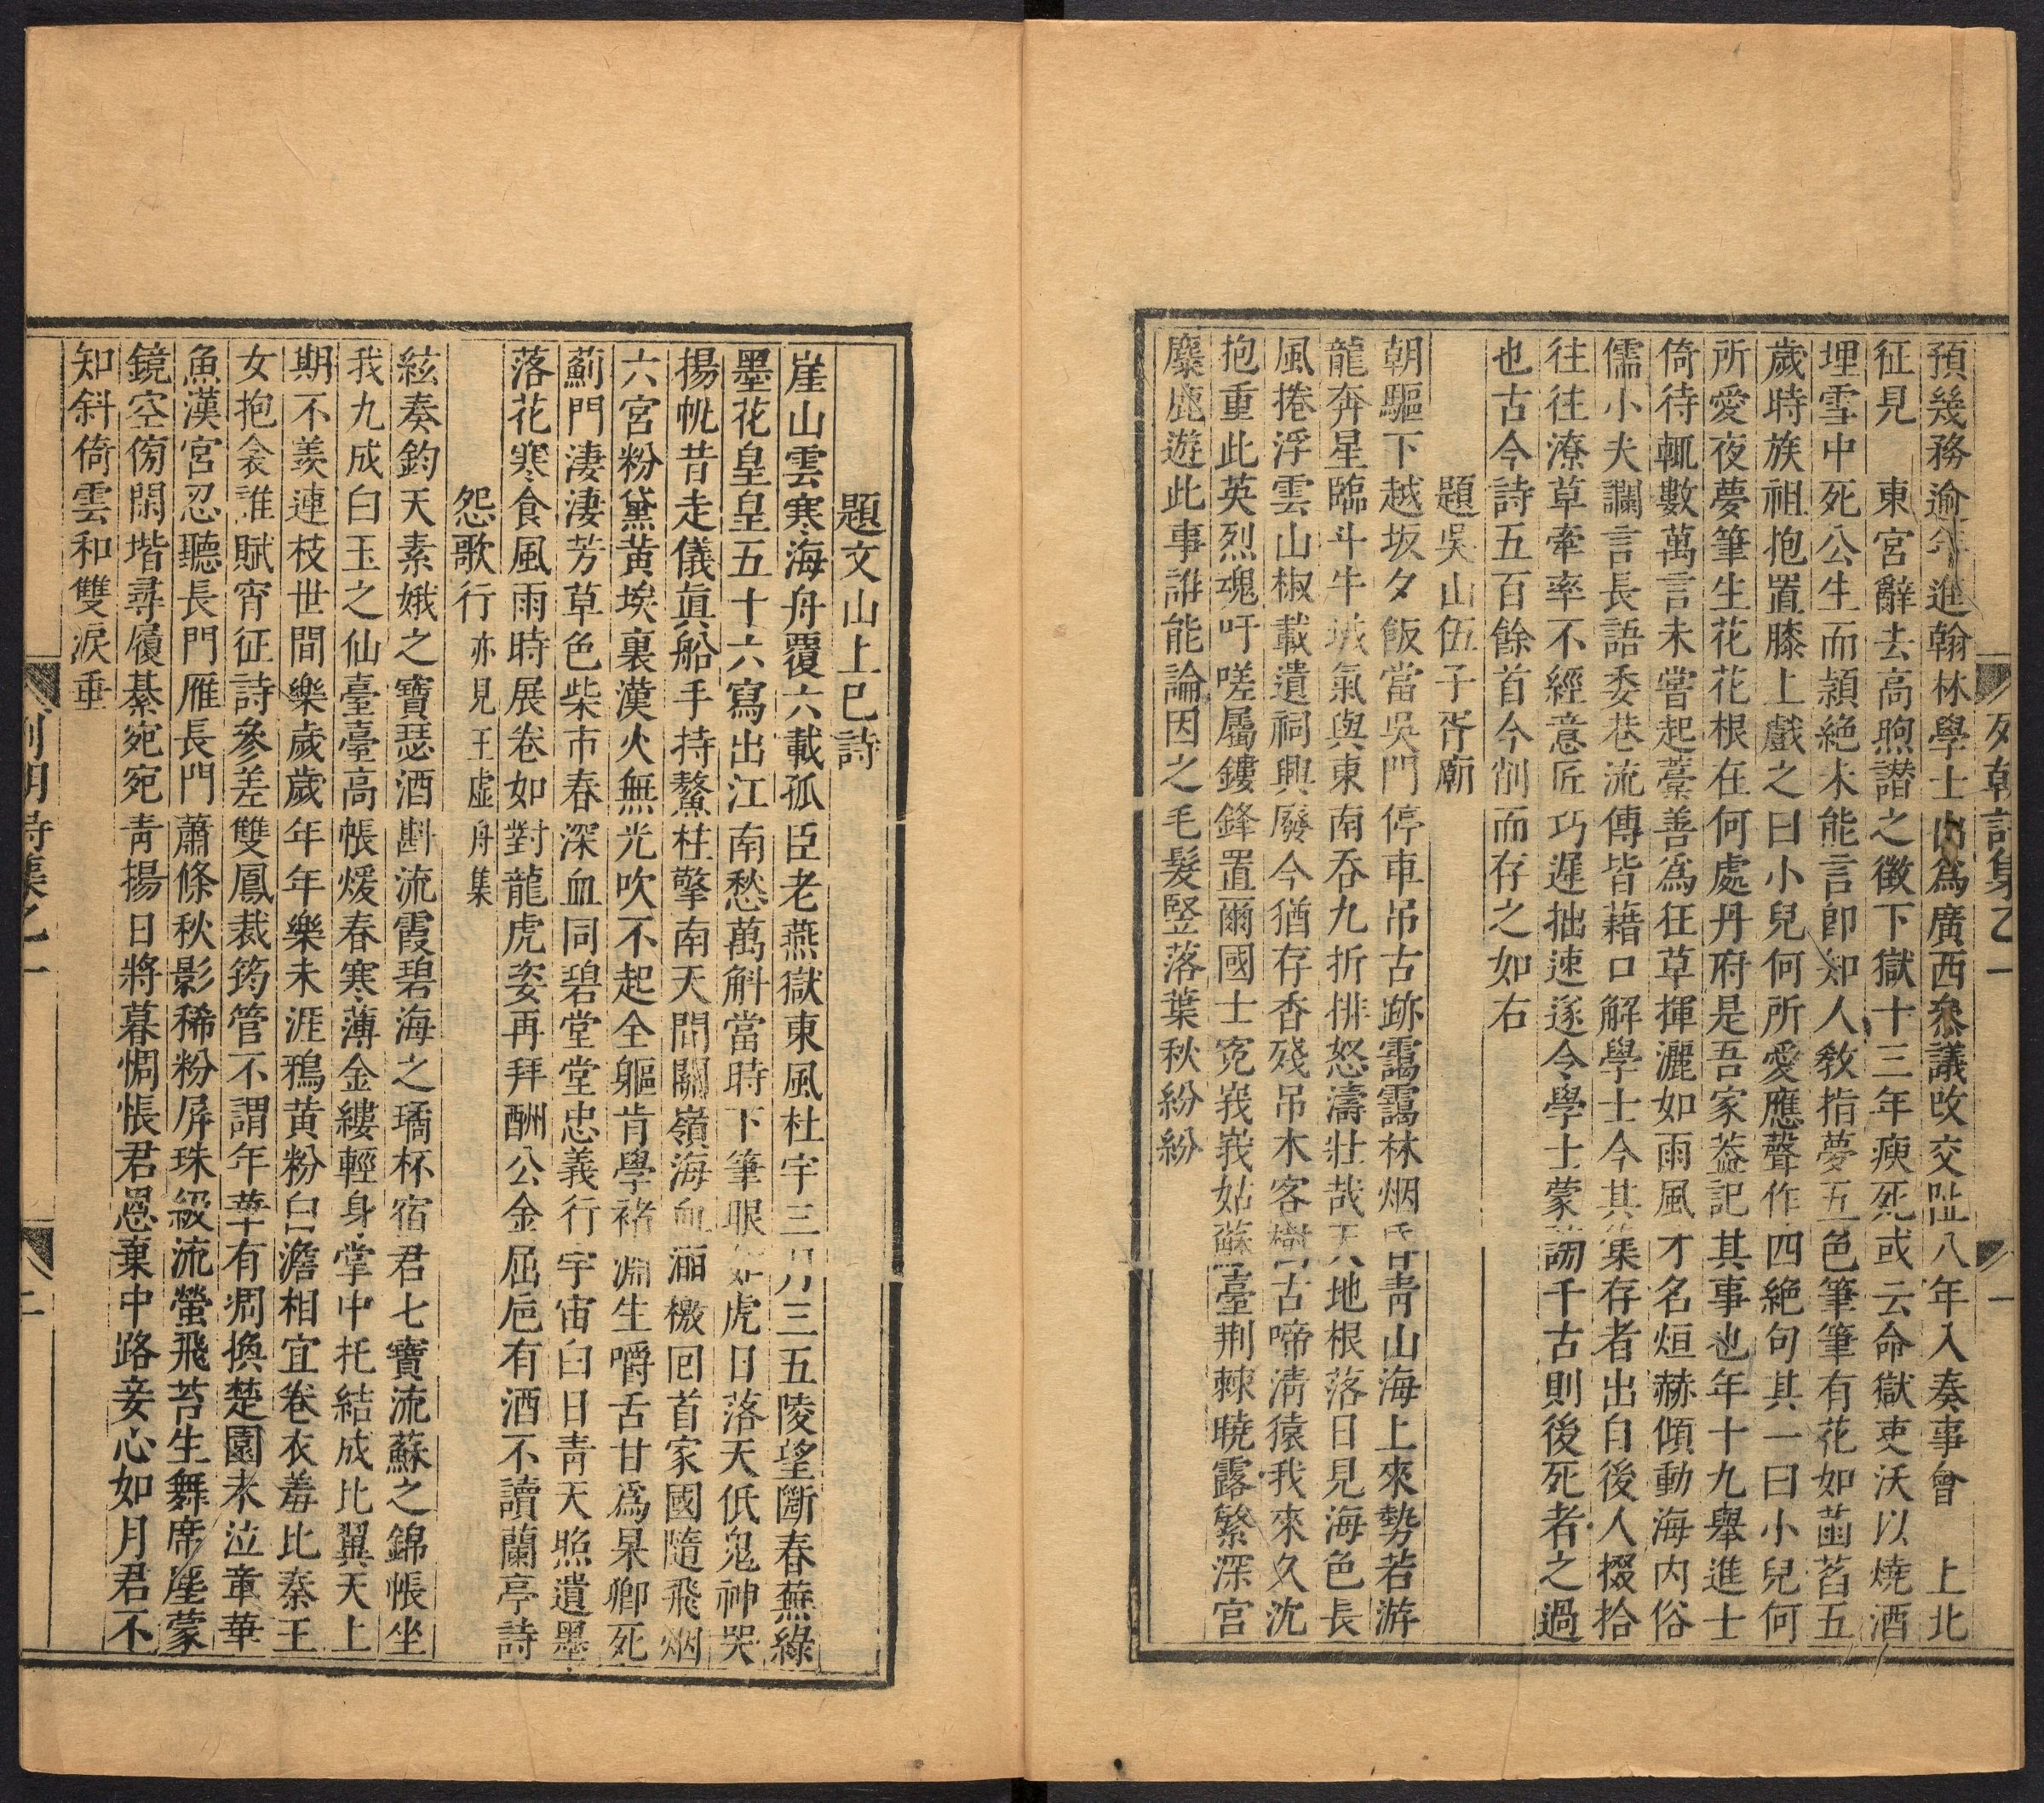 列朝詩集乙一 一
預幾務逾年進翰林學士出爲廣西叅議改交阯八年入奏事會 上北
征見 東宮辭去高煦譖之徵下獄十三年瘐死或云命獄吏沃以燒酒
埋雪中死公生而頴絶未能言卽知人敎指夢五色筆筆有花如菡萏五
歲時族祖抱置膝上戲之曰小兒何所愛應聲作四絶句其一曰小兒何
所愛夜夢筆生花花根在何處丹府是吾家葢記其事也年十九舉進士
倚待輒數萬言未嘗起藁善爲狂草揮灑如雨風才名烜赫傾動海内俗
儒小夫讕言長語委巷流傳皆藉口解學士今其集存者出自後人掇拾
往往潦草牽率不經意匠巧遲拙速遂令學士蒙謗千古則後死者之過
也古今詩五百餘首今削而存之如右
題吳山伍子胥廟
朝驅下越坂夕飯當吳門停車吊古跡靄靄林烟昏青山海上來勢若游
龍奔星臨斗牛域氣與東南吞九折排怒濤壯哉天地根落日見海色長
風捲浮雲山椒載遺祠興廢今猶存香殘吊木客樹古啼淸猿我來久沈
抱重此英烈魂吁嗟屬鏤鋒置爾國士冤峩峩姑蘇臺荆棘曉露繁深宫
麋鹿遊此事誰能論因之毛髮竪落葉秋紛紛
題文山上巳詩
崖山雲寒海舟覆六載孤臣老燕獄東風杜宇三月三五陵望斷春蕪綠
墨花皇皇五十六寫出江南愁萬斛當時下筆眼如虎日落天低鬼神哭
揚帆昔走儀眞船手持鰲柱擎南天間關嶺海血洒檄回首家國隨飛烟
六宮粉黛黃埃裏漢火無光吹不起全軀肯學褚淵生嚼舌甘爲杲卿死
薊門淒淒芳草色柴市春深血同碧堂堂忠義行宇宙白日青天照遺墨
落花寒食風雨時展卷如對龍虎姿再拜酬公金屈卮有酒不讀蘭亭詩
怨歌行 亦見王虛舟集
絃奏鈞天素娥之寶瑟酒斟流霞碧海之璚杯宿君七寶流蘇之錦帳坐
我九成白玉之仙臺臺高帳煖春寒薄金縷輕身掌中托結成比翼天上
期不羨連枝世間樂歲歲年年樂未涯鴉黃粉白澹相宜卷衣羞比秦王
女抱衾誰賦宵征詩參差雙鳳裁筠管不謂年華有凋換楚園未泣章華
魚漢宮忍聽長門雁長門蕭條秋影稀粉屏珠級流螢飛苔生舞席塵蒙
鏡空傍閑堦尋履綦宛宛青揚日將暮惆悵君恩棄中路妾心如月君不
知斜倚雲和雙淚垂
列朝詩集乙一 二